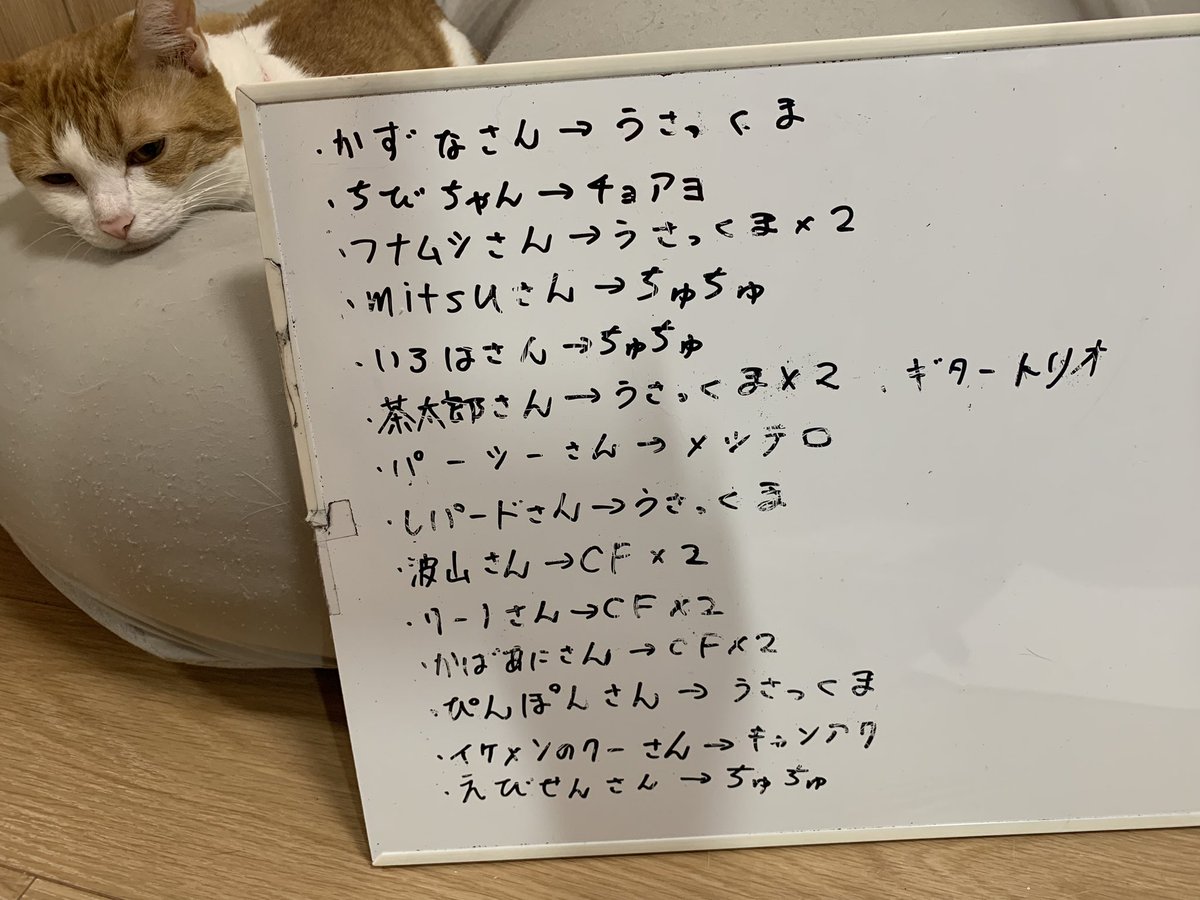 ・かずなさん→うさっくま
・ちびちゃん→チョアヨ
・フナムシさん→うさっくま×2
・mitsuさん→ちゅちゅ
・いろはさん→ちゅちゅ
・茶太郎さん→うさっくま×2、ギタートリオ
・パーツーさん→メシテロ
・レパードさん→うさっくま
・波山さん→CF×2
・リーノさん→CF×2
・かばあにさん→CF×2
・ぴんぽんさん→うさっくま
・イケメンのクーさん→キャンアク
・えびせんさん→ちゅちゅ